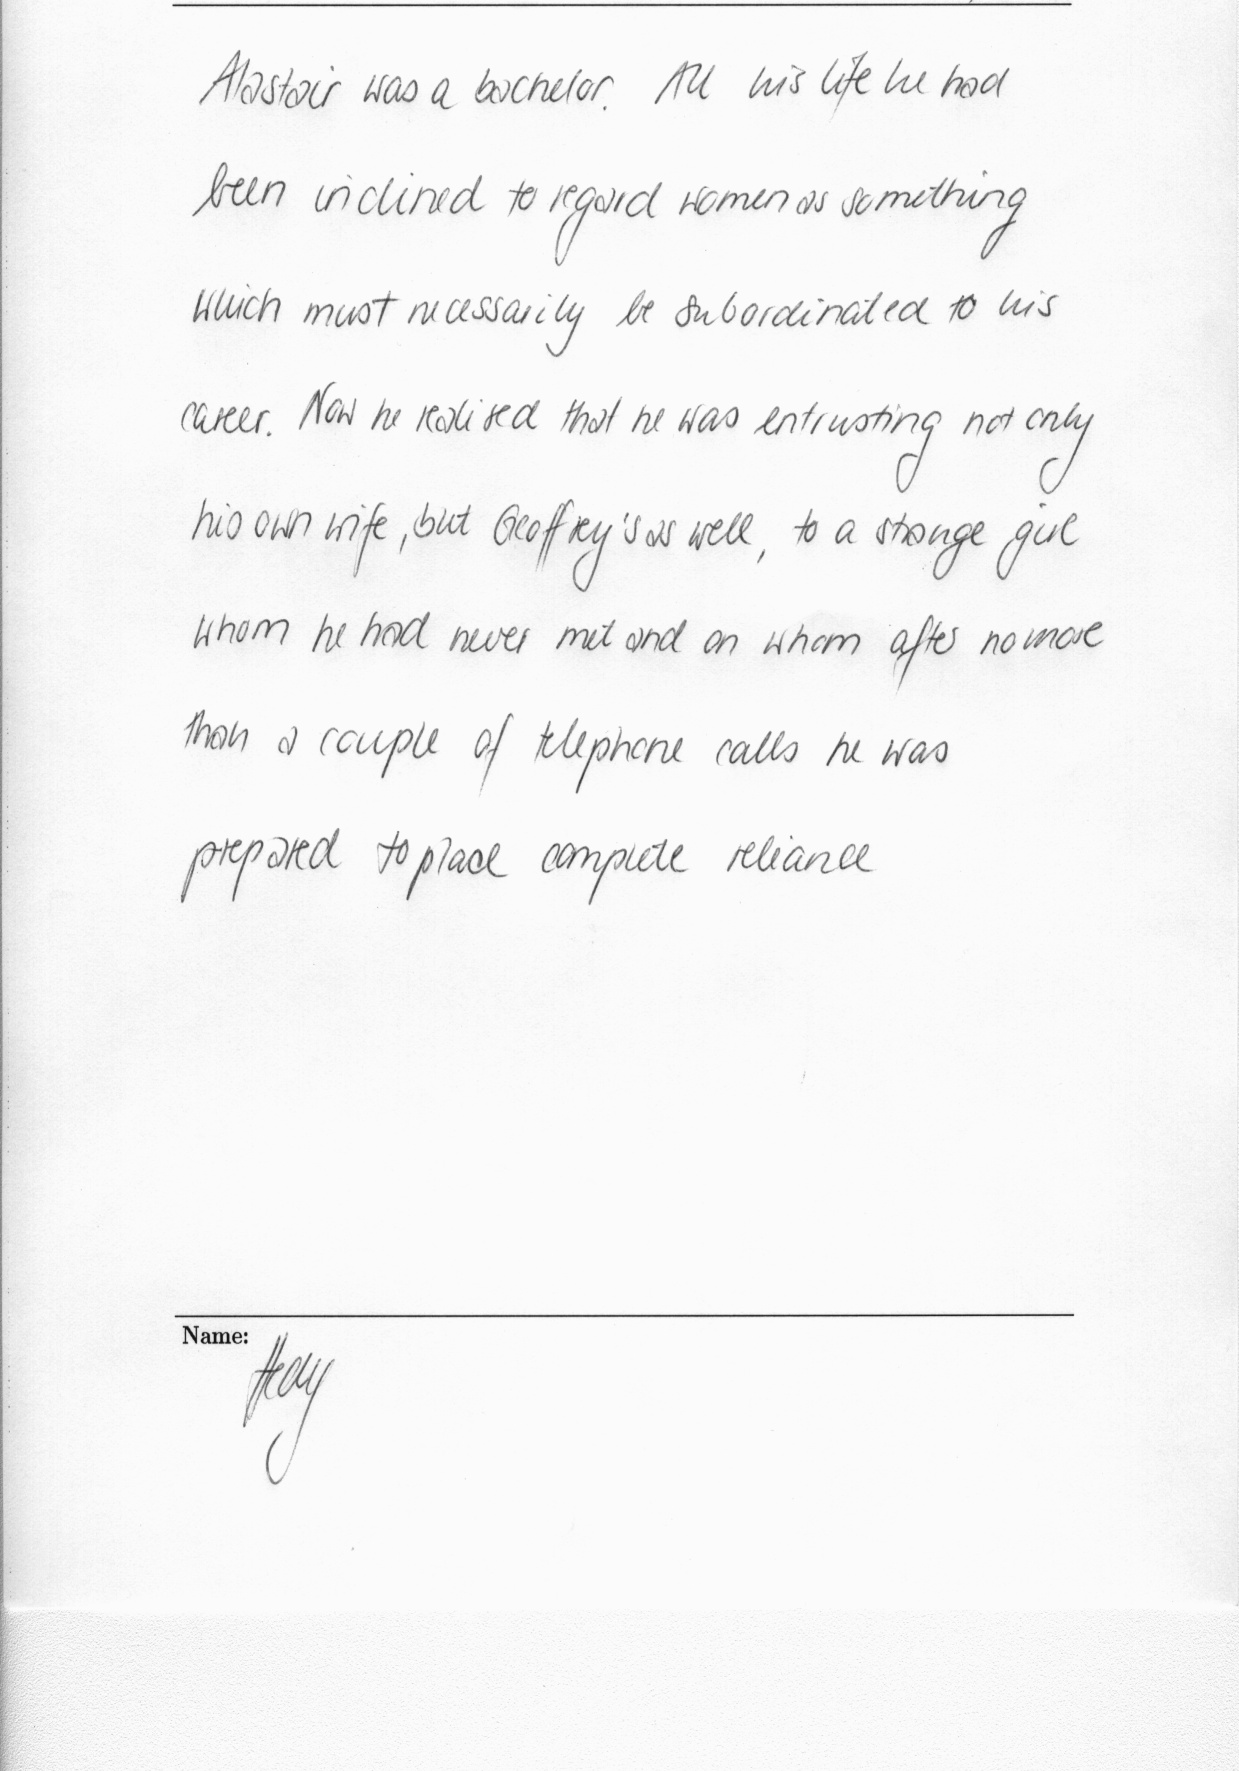 Alastair was a bachelor. All his life he had
been inclined to regard women as something
which must necessarily be subordinated to his
career. Now he realised that he was entrusting not only
his own wife, but Geoffrey's as well, to a strange girl
whom he had never met and on whom after no more
than a couple of telephone calls he was
prepared to place complete reliance
Name: